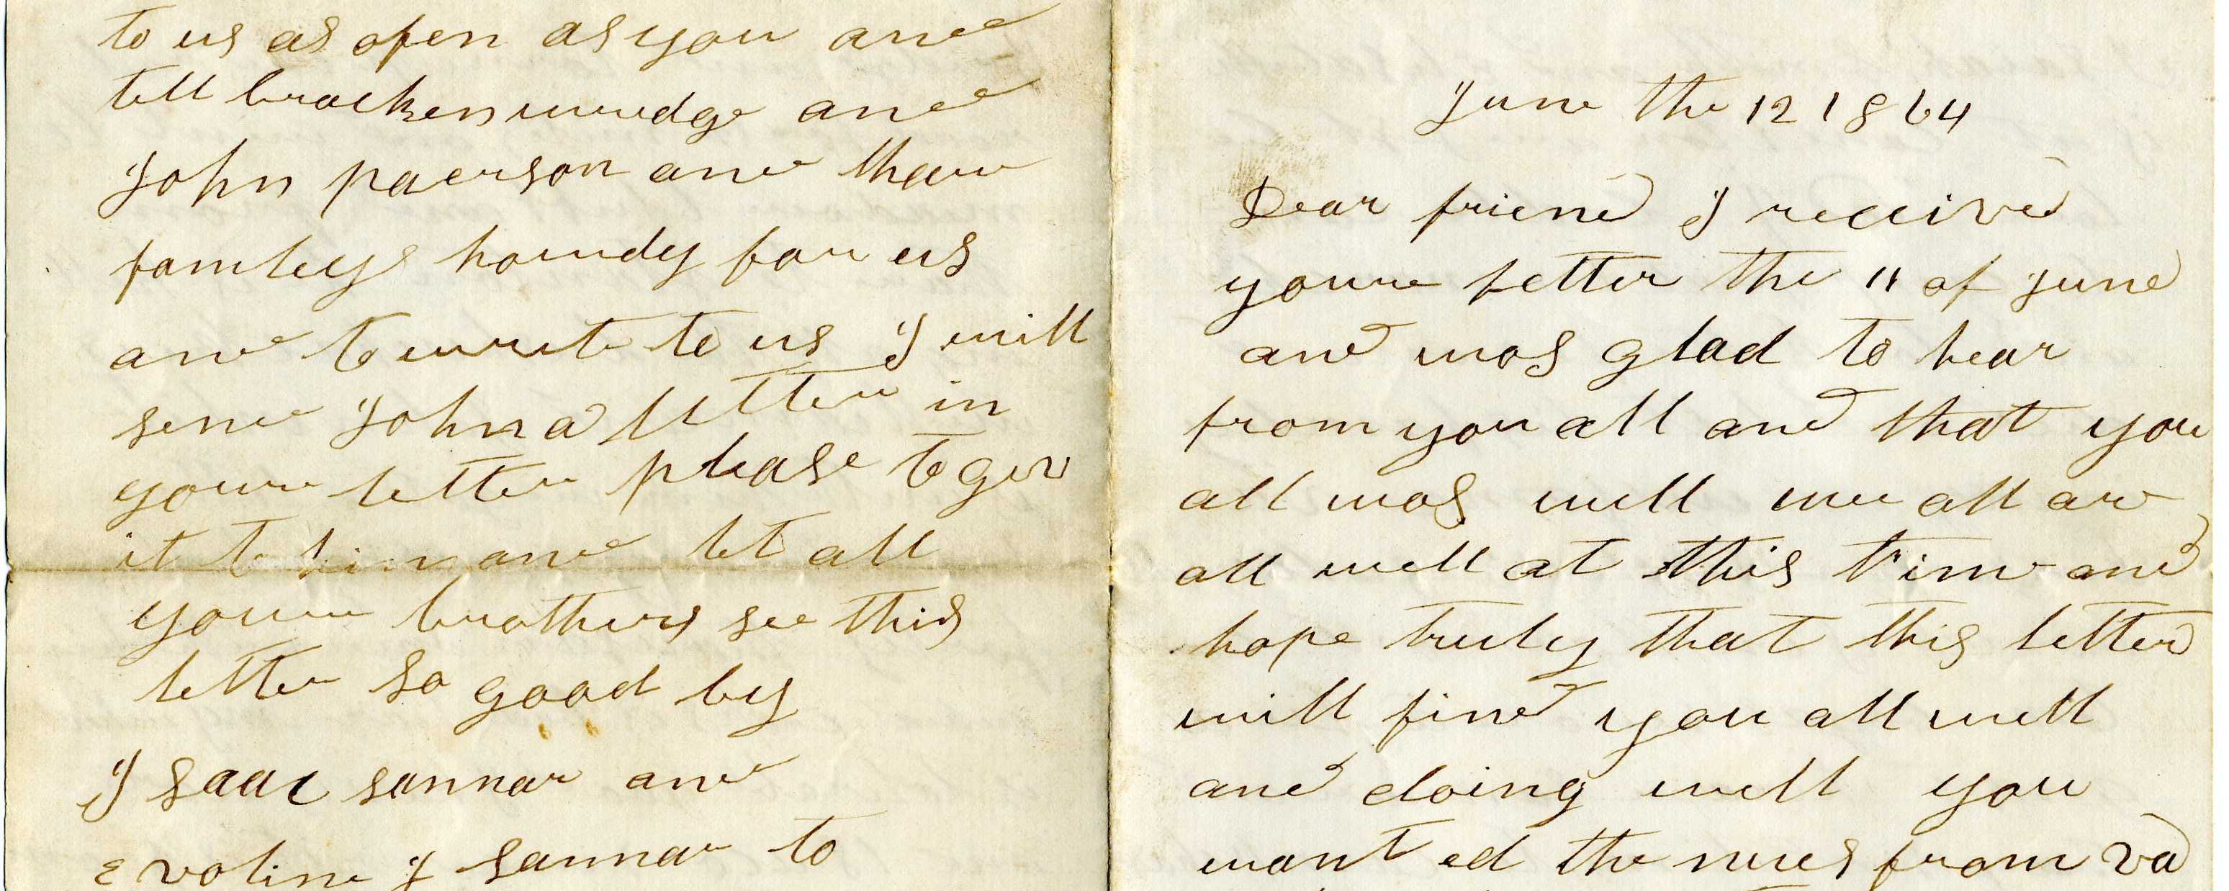 to us as ofen as you and
tell brackenwridge and
John paerson and thare
famleys howdy for us
and to write to us I will
send John a letter in
youre letter please to giv
it to him and let all
youre brothers see this
letter so good by
Isaac sannar and
Evoline J sannar to
June the 12 1864
Dear friend I received
youre letter the 11 of June
and was glad to hear
from you all and that you
all was well we all are
all well at this time and
hope truly that this letter
will find you all well
and doing well you
want ed the nues from va